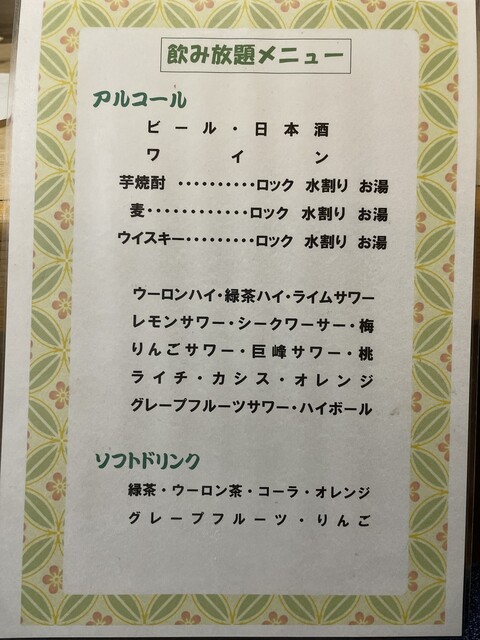 飲み放題メニュー
アルコール
ビール・日本酒
ワイン
芋焼酎 ··········ロック 水割り お湯
麦············ロック 水割り お湯
ウイスキー·········ロック 水割り お湯
ウーロンハイ・緑茶ハイ・ライムサワー
レモンサワー・シークワーサー・梅
りんごサワー・巨峰サワー・桃
ライチ・カシス・オレンジ
グレープフルーツサワー・ハイボール
ソフトドリンク
緑茶・ウーロン茶・コーラ・オレンジ
グレープフルーツ・りんご